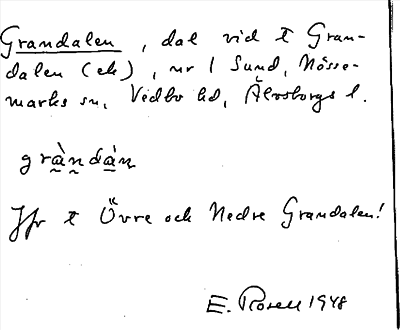 Grandalen, dal vid t Gran-
dalen (ek), nr 1 Sund, Nösse-
marks sn, Vedbo hd, Älvsborgs l.
gràndàn
Jfr t Övre och Nedre Grandalen!
E. Rosell 1948